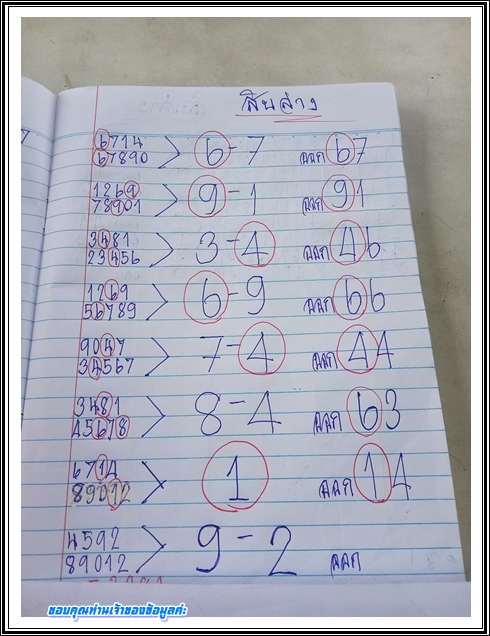 สิบล่าง
6714
67890 > 6-7 ออก 67
1269
78901 > 9-1 ออก 91
3481
23456 > 3-4 ออก 46
1269
56789 > 6-9 ออก 66
9047
34567 > 7-4 ออก 44
3481
45678 > 8-4 ออก 63
6714
89012 > 1 ออก 14
4592
89012 > 9-2 ออก
ขอบคุณท่านเจ้าของข้อมูลค่ะ